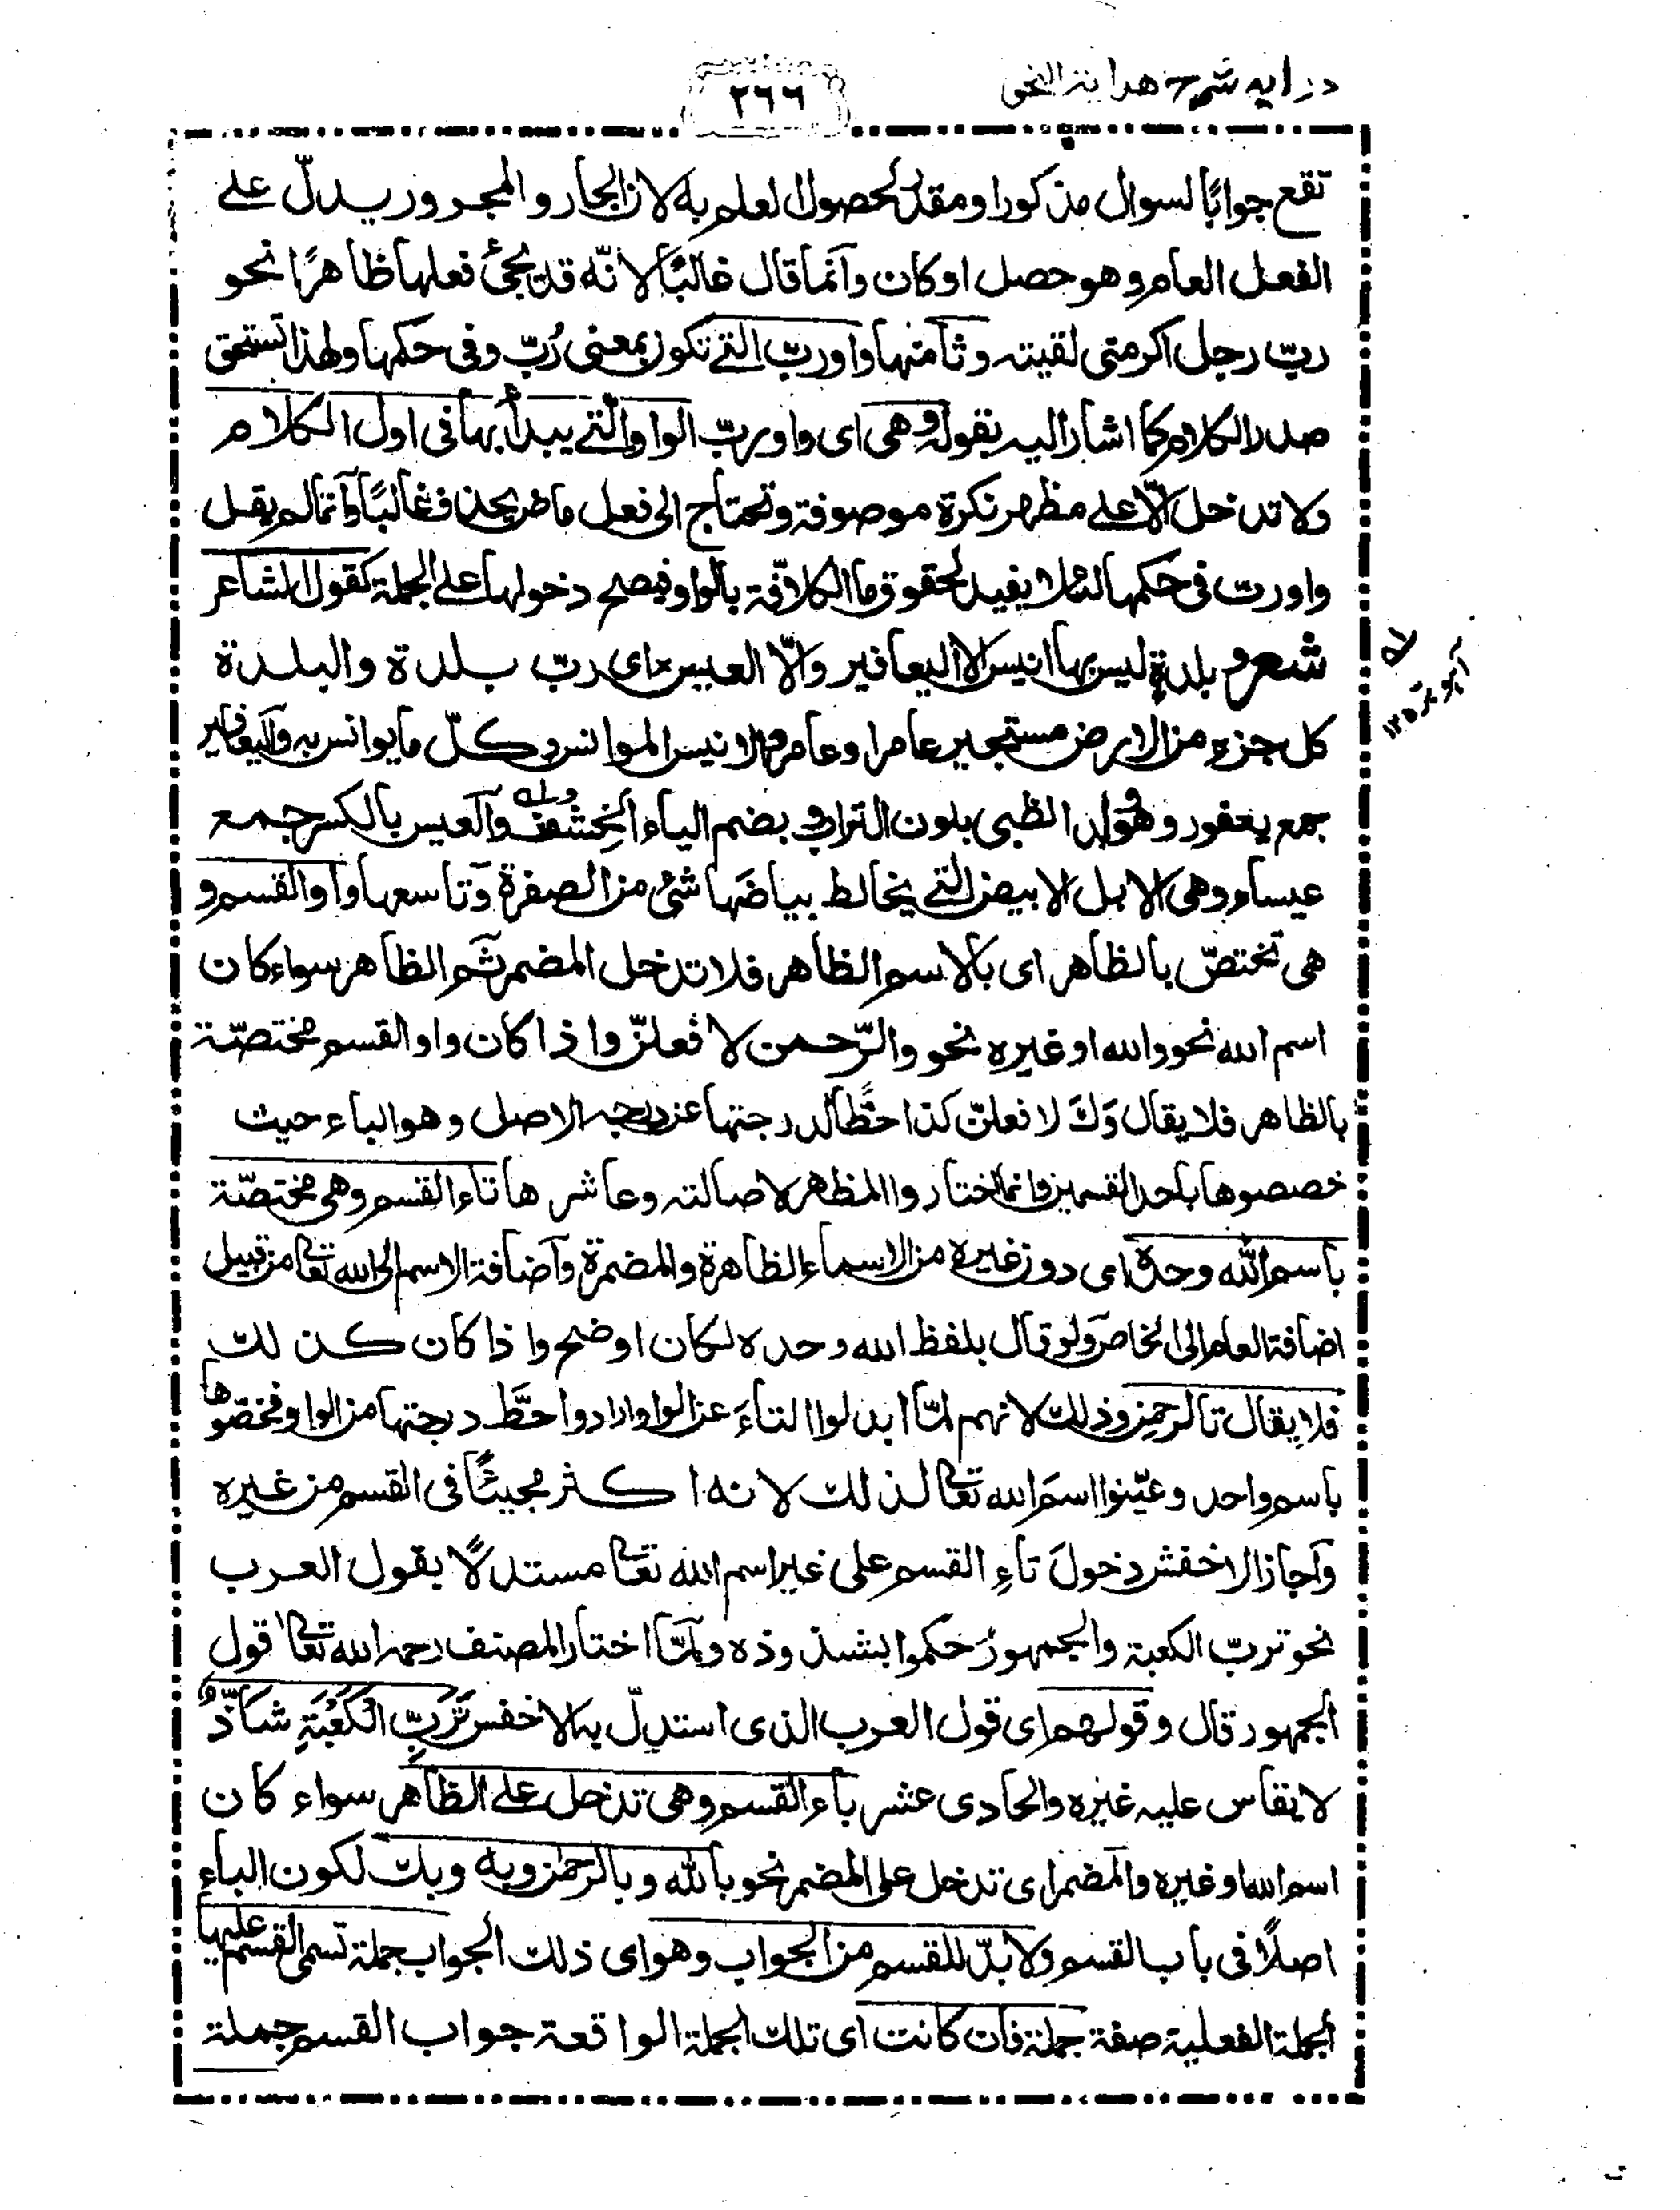 درايه شرح هداية النحو
٢٦٦
تقع جوابًا لسوال مذكورا ومقدر لحصول العلم به لان الجار والمجرور يدلّ على
الفعل العام وهو حصل او كان وانّما قال غالبًا لانّه قد يجئ فعلها ظاهرًا نحو
ربّ رجل اكرمنى لقيته وثامنها واو ربّ التى تكون بمعنى رُبّ وفى حكمها ولهذا تستحق
صدر الكلام كما اشار اليه بقوله وهى اى واو ربّ الواو التى يبدأ بها فى اول الكلام
ولا تدخل الّا على مظهر نكرة موصوفة وتحتاج الى فعل ماض يحذف غالبًا وانّما لم يقل
واو ربّ فى حكمها لئلا يفيد لحقوق ما الكافّة بالواو فيصح دخولها على الجملة كقول الشاعر
شعر و بلدةٍ ليس بها انيس الا اليعافير والّا العيس اى ربّ بلدة والبلدة
كل جزء من الارض مستجير عامرا وعامر والانيس الموانس وكلّ ما يوانس به واليعافير
جمع يعفور وهو ولد الظبى بلون التراب و بضم الياء الخشف ولده والعيس بالكسر جمع
عيساء وهى الابل الابيض التى يخالط بياضَها شئ من الصفرة وتاسعها واو القسم و
هى تختصّ بالظاهر اى بالاسم الظاهر فلا تدخل المضمر ثم الظاهر سواء كان
اسم الله نحو والله او غيره نحو والرّحمن لافعلنّ واذا كان واو القسم مختصّة
بالظاهر فلا يقال وَكَ لافعلنّ كذا حطًّا لدرجتها عن درجة الاصل وهو الباء حيث
خصصوها باحد القسمين وانما اختاروا المظهر لاصالته وعاشرها تاء القسم وهى مختصّة
باسم الله وحده اى دون غيره من الاسماء الظاهرة والمضمرة واضافة الاسم الى الله تعا من قبيل
اضافة العام الى الخاص ولو قال بلفظ الله وحده لكان اوضح واذا كان كذلك
فلا يقال تالرحمن وذلك لانهم لمّا ابدلوا التاءَ عن الواو ارادوا حطَّ درجتها من الواو فخصّوها
باسم واحد وعيّنوا اسمَ الله تعا لذلك لانه اكثر مجيئًا فى القسم من غيره
واجاز الاخفش دخولَ تاءِ القسم على غير اسم الله تعا مستدلًا بقول العرب
نحو تربّ الكعبة والجمهورُ حكموا بشذوذه ولمّا اختار المصنف رحمه الله تعا قول
الجمهور قال وقولهم اى قول العرب الذى استدلّ به الاخفس تَرَبِّ الْكَعْبَةِ شاذّ
لا يقاس عليه غيره والحادى عشر باء القسم وهى تدخل على الظاهر سواء كان
اسم الله او غيره والمضمر اى تدخل على المضمر نحو بالله وبالرحمن وبه وبك لكون الباء
اصلًا فى باب القسم ولا بدّ للقسم من الجواب وهو اى ذلك الجواب جملة تسمى القسم عليها
الجملة الفعلية صفة جملة فان كانت اى تلك الجملة الواقعة جواب القسم جملة